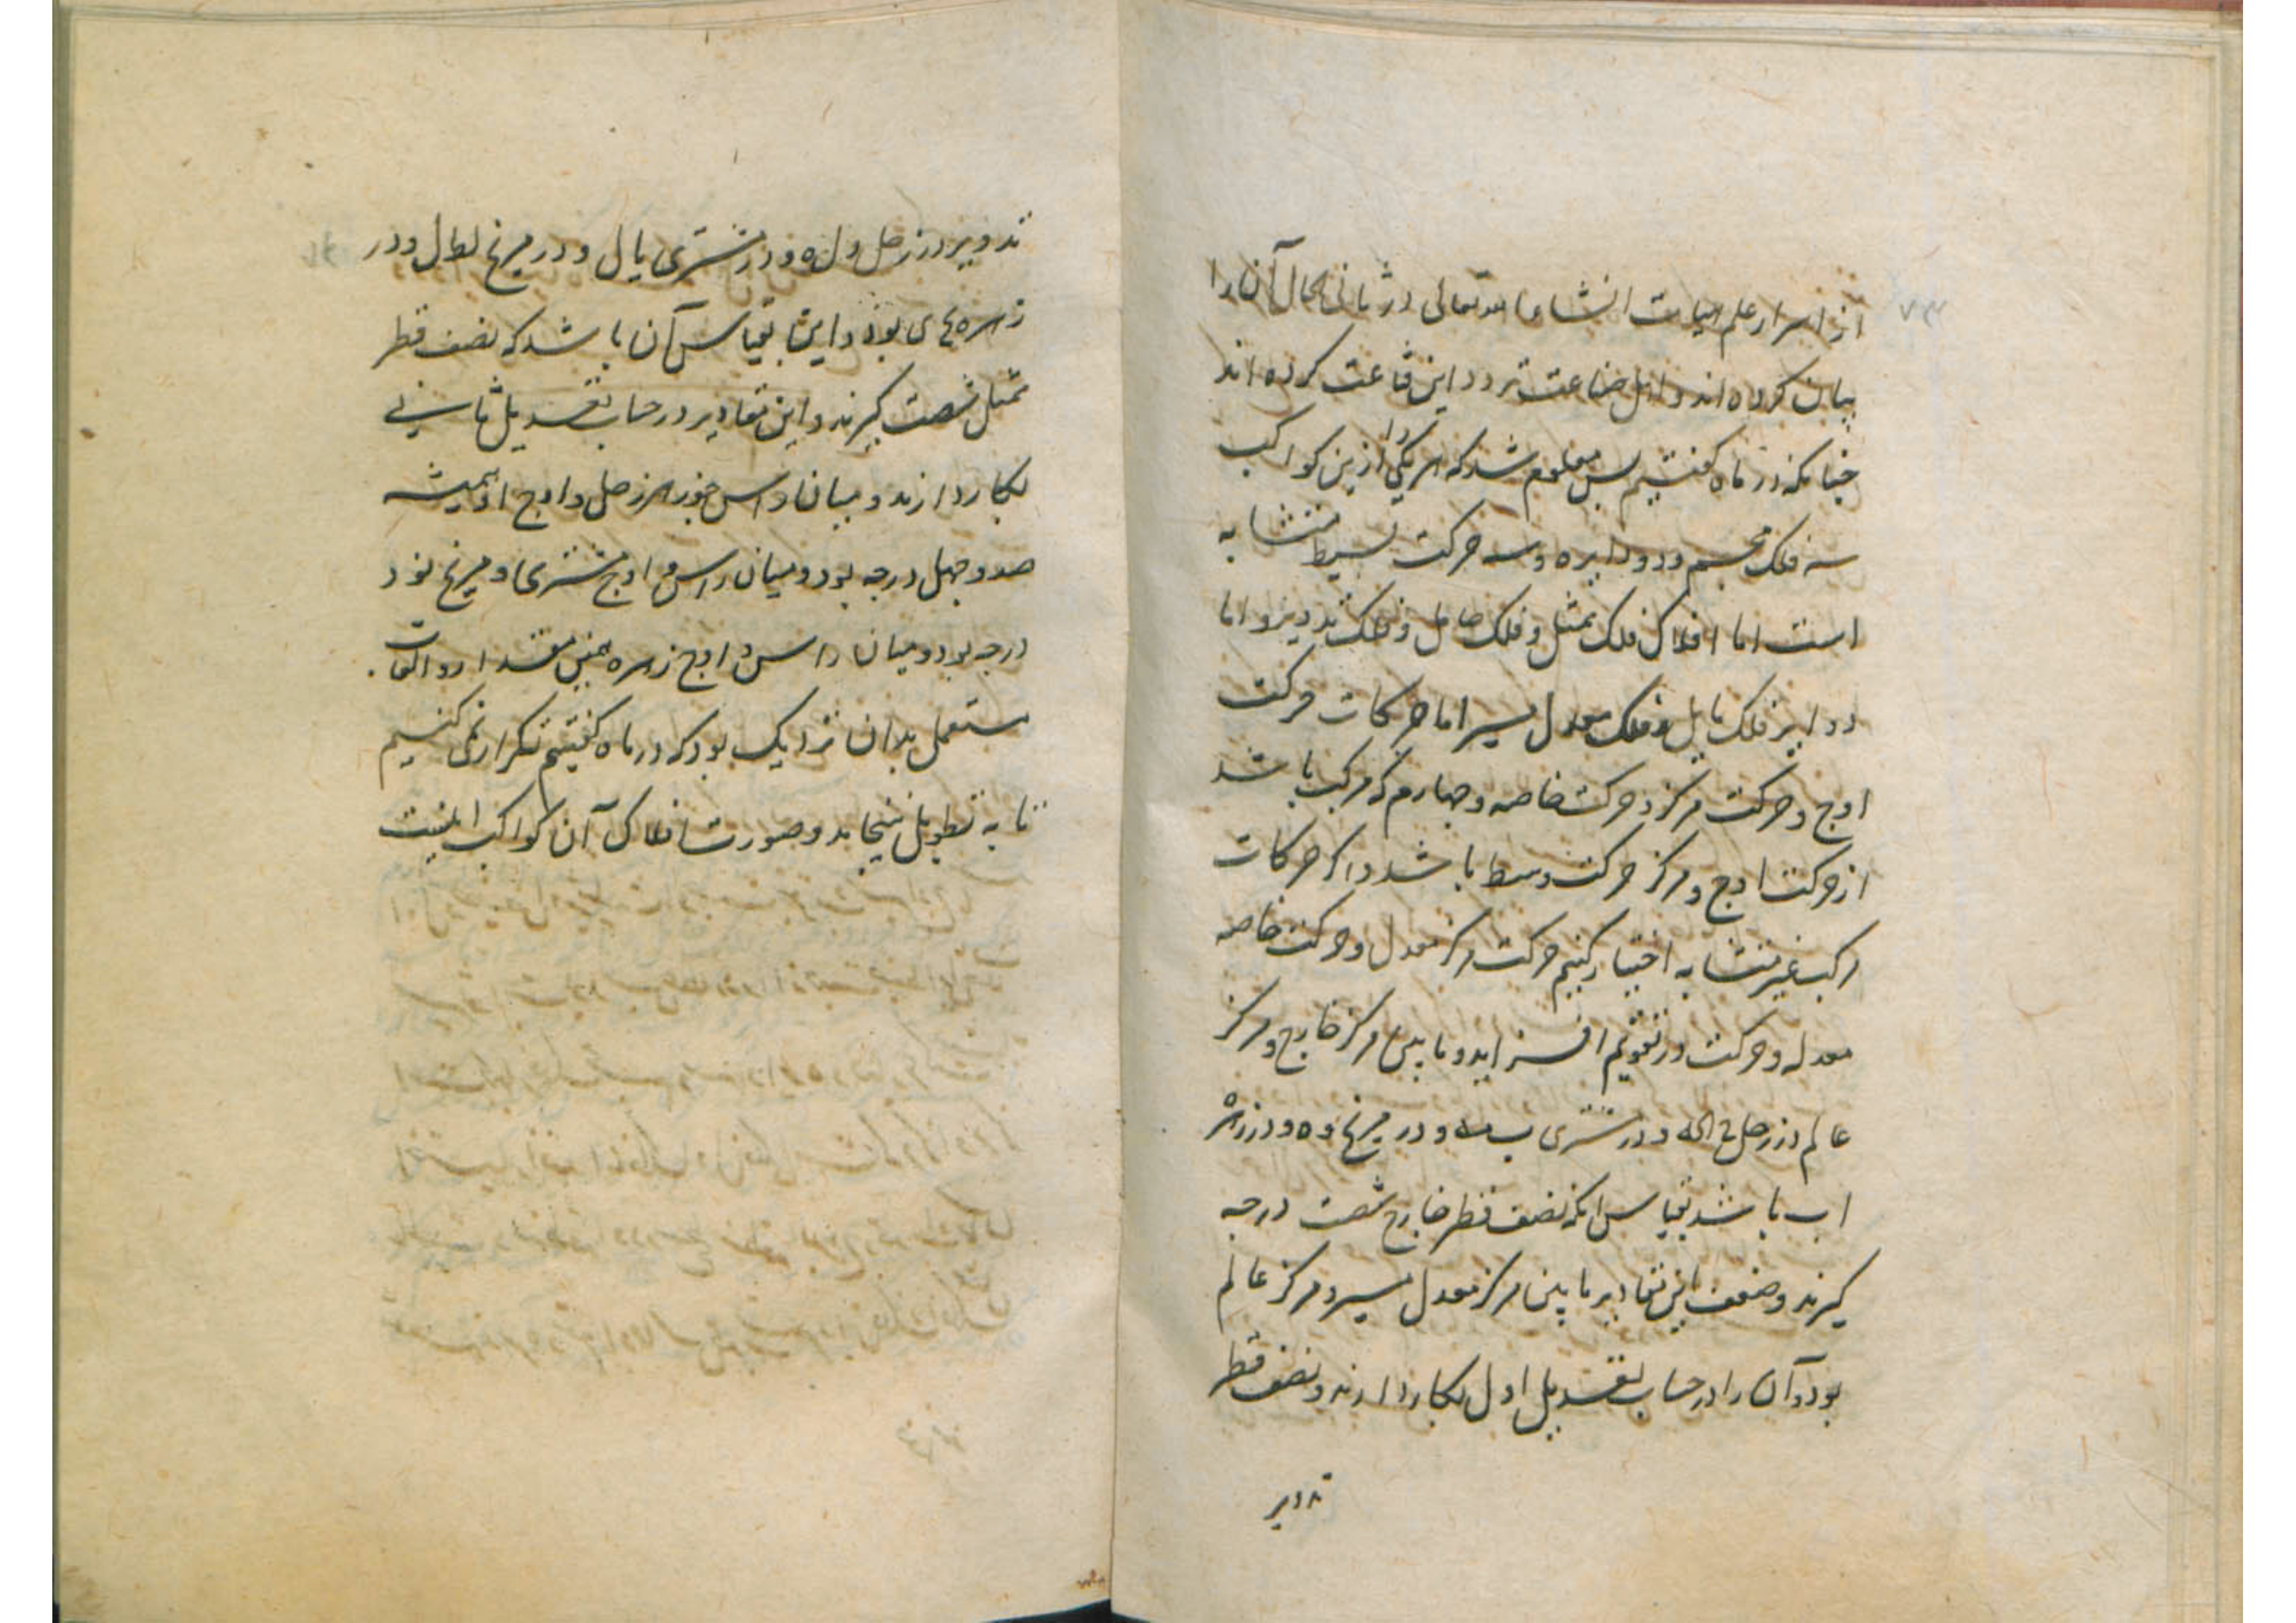 از اسرار علم هیات انشاء الله تعالی در ثانی الحال آن را
بیان کرده اند و اهل صناعت تردد این قناعت کرده اند
چنانکه در ماه گفتیم پس معلوم شد که هر یکی را ازین کواکب
سه فلک مجسم و دو دایره و سه حرکت بسیط متشابه
است اما افلاک فلک ممثل و فلک حامل و فلک تدویر و اما
دوایر فلک مایل و فلک معدل مسیر اما حرکات حرکت
اوج و حرکت مرکز و حرکت خاصه و چهارم که مرکب باشد
از حرکت اوج و مرکز حرکت وسط باشد و اگر حرکات
مرکب غیر متشابه اختیار کنیم حرکت مرکز معدل و حرکت خاصه
معدله و حرکت در تقویم افزاید و ما بین مرکز خارج و مرکز
عالم در زحل و در مشتری و در مریخ و ه و در زهره
اب باشد بقیاس آنکه نصف قطر خارج شصت درجه
گیرند و ضعف این مقادیر ما بین مرکز معدل مسیر و مرکز عالم
بود و آن را در حساب تعدیل اول بکار دارند و نصف قطر
تدویر
تدویر در زحل و ل ه و در مشتری یا ل و در مریخ لط ل و در
زهره بود و این بقیاس آن باشد که نصف قطر
ممثل شصت گیرند و این مقادیر در حساب تعدیل ثانی
بکار دارند و میان راس جوزهر زحل و اوج او همیشه
صد و چهل درجه بود و میان راس و اوج مشتری و مریخ نود
درجه بود و میان راس و اوج زهره همین مقدار و التفات
مستعمل بدان نزدیک بود که در ماه گفتیم تکرار نمی کنیم
تا به تطویل نینجامد و صورت افلاک آن کواکب اینست